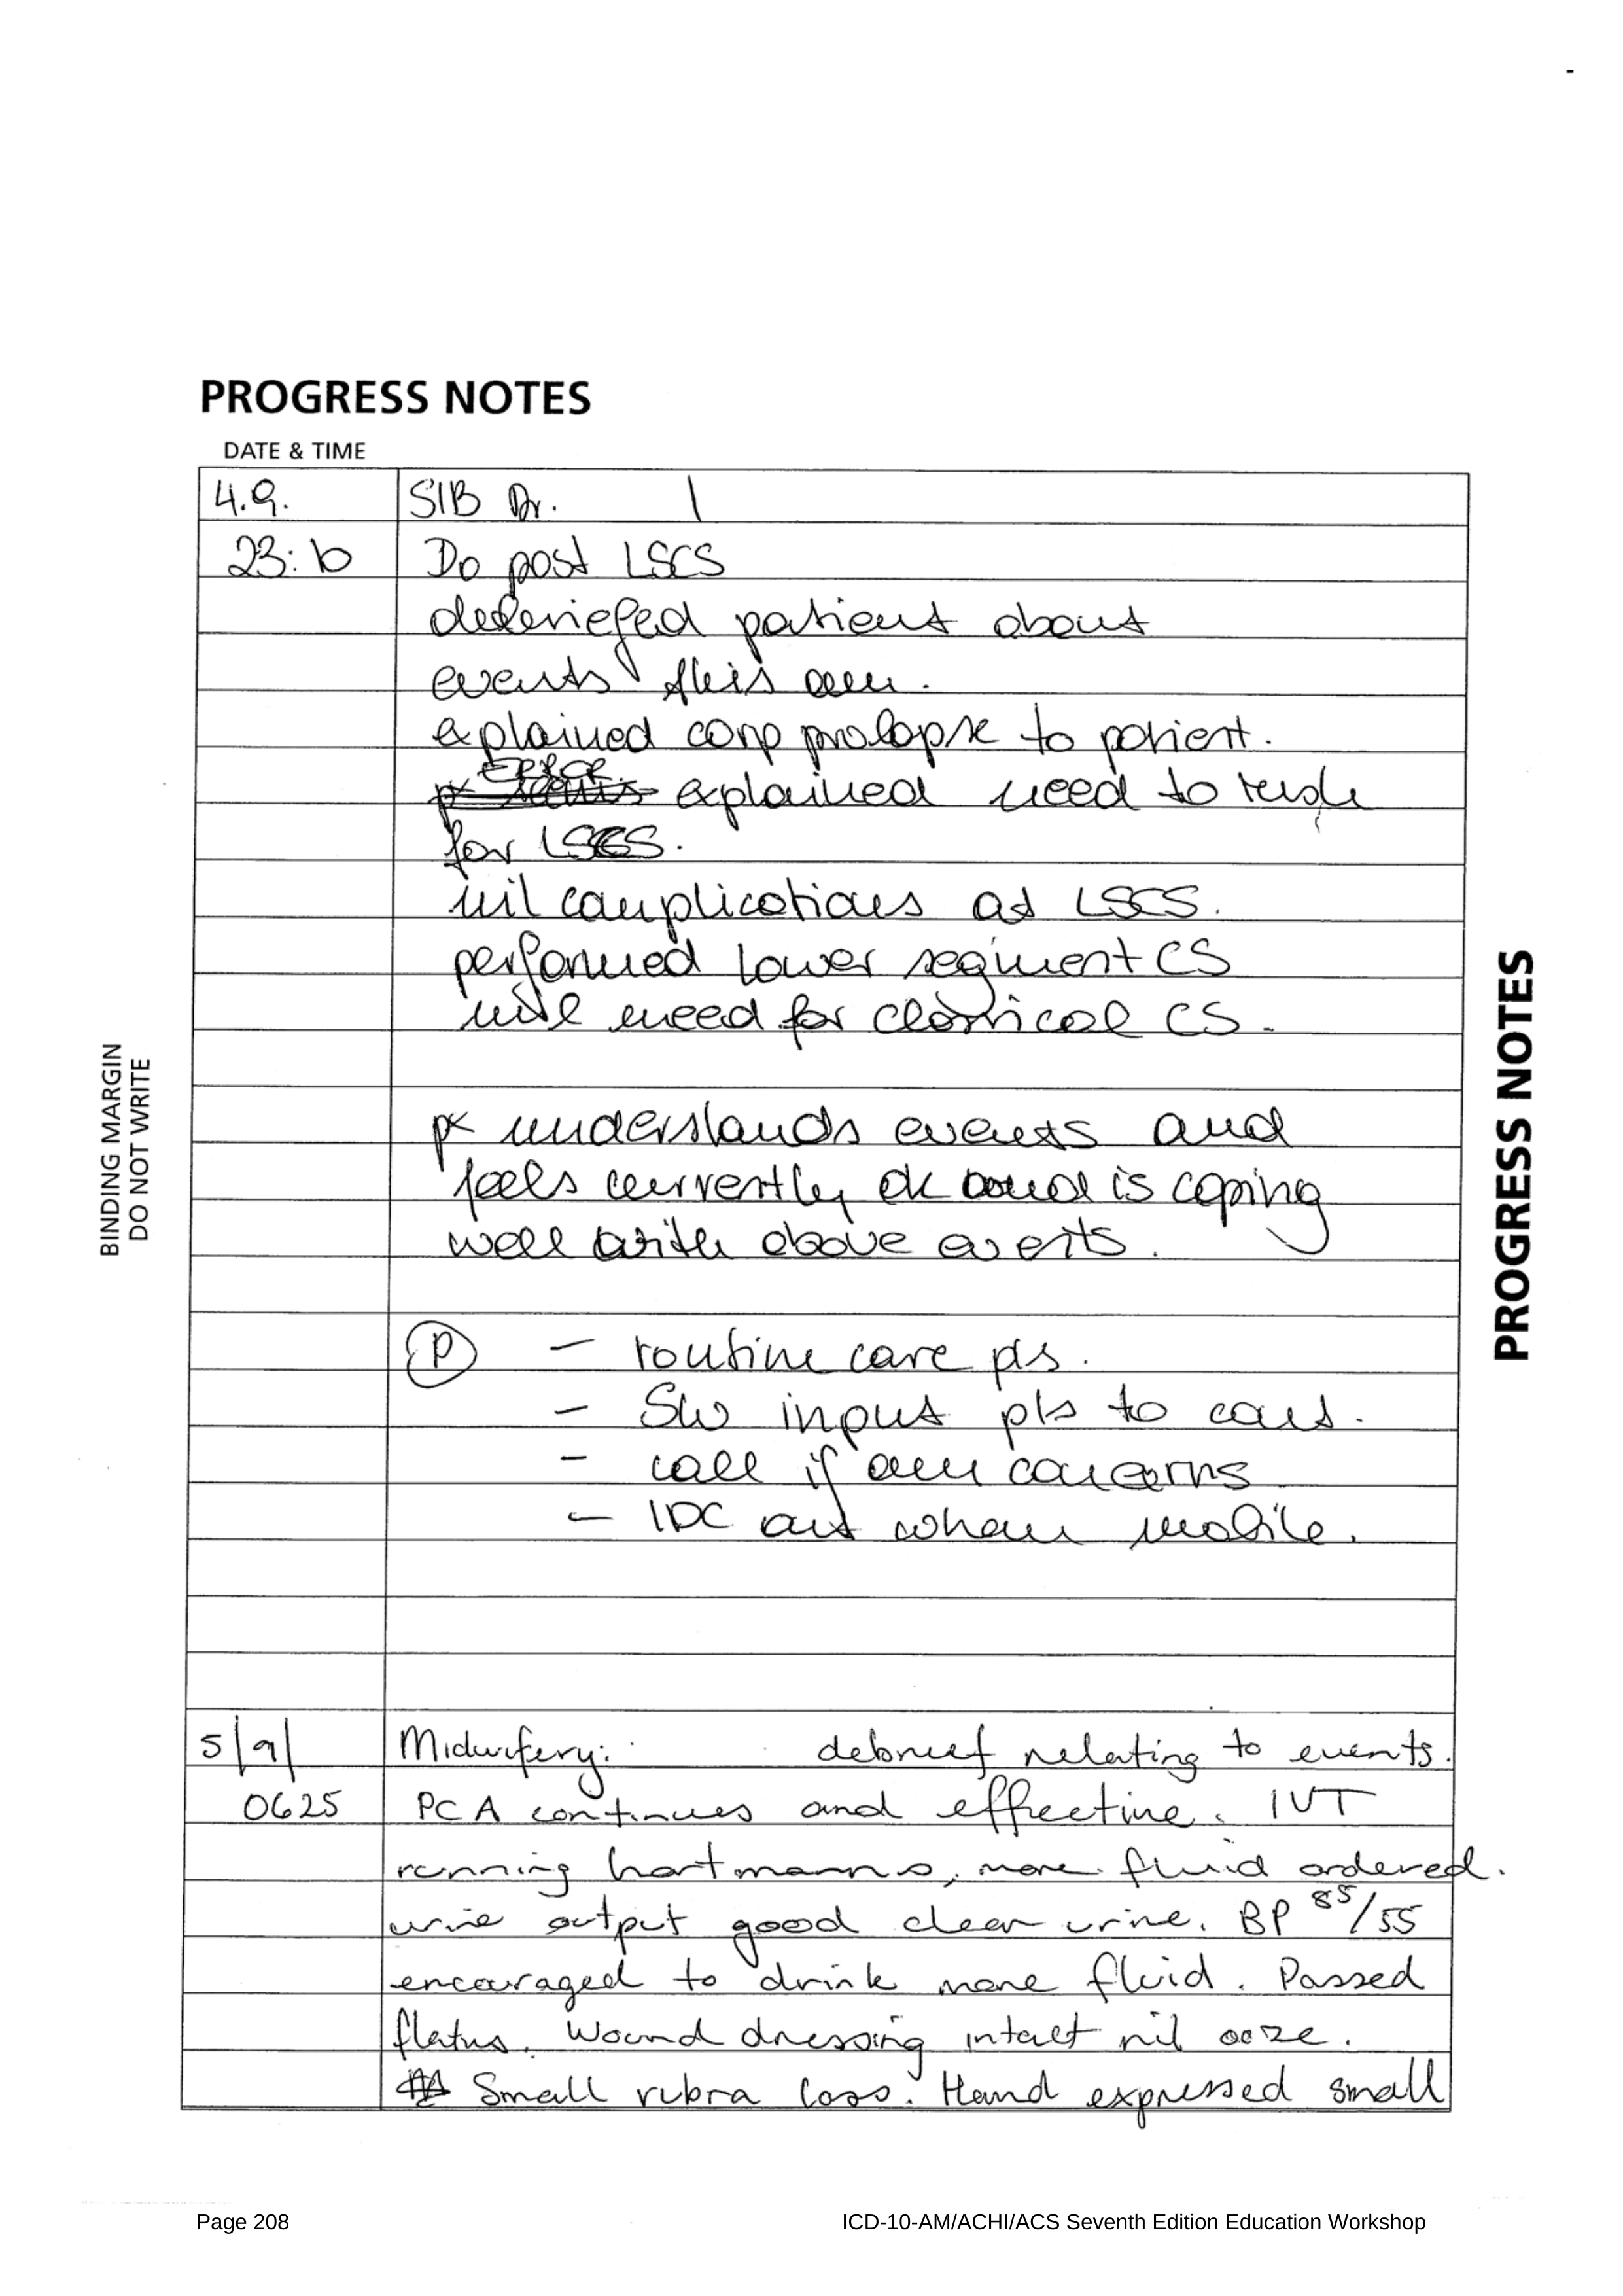 PROGRESS NOTES
DATE & TIME
4.9. SIB Dr.
23:10 Do post LSCS
debriefed patient about
events this am.
explained cord prolapse to patient.
Error explained need to rush
for LSCS.
nil complications at LSCS.
performed lower segment CS
nil need for classical CS.
pt understands events and
feels currently ok and is coping
well with above events.
P – routine care pls.
– SW input pls to cont.
– call if any concerns
– IDC out when mobile.
5/9/ Midwifery: debrief relating to events.
0625 PCA continues and effective. IVT
running hartmanns, more fluid ordered.
urine output good clear urine. BP 85/55
encouraged to drink more fluid. Passed
flatus. Wound dressing intact nil ooze.
Small rubra loss. Hand expressed small
BINDING MARGIN
DO NOT WRITE
PROGRESS NOTES
Page 208 ICD-10-AM/ACHI/ACS Seventh Edition Education Workshop